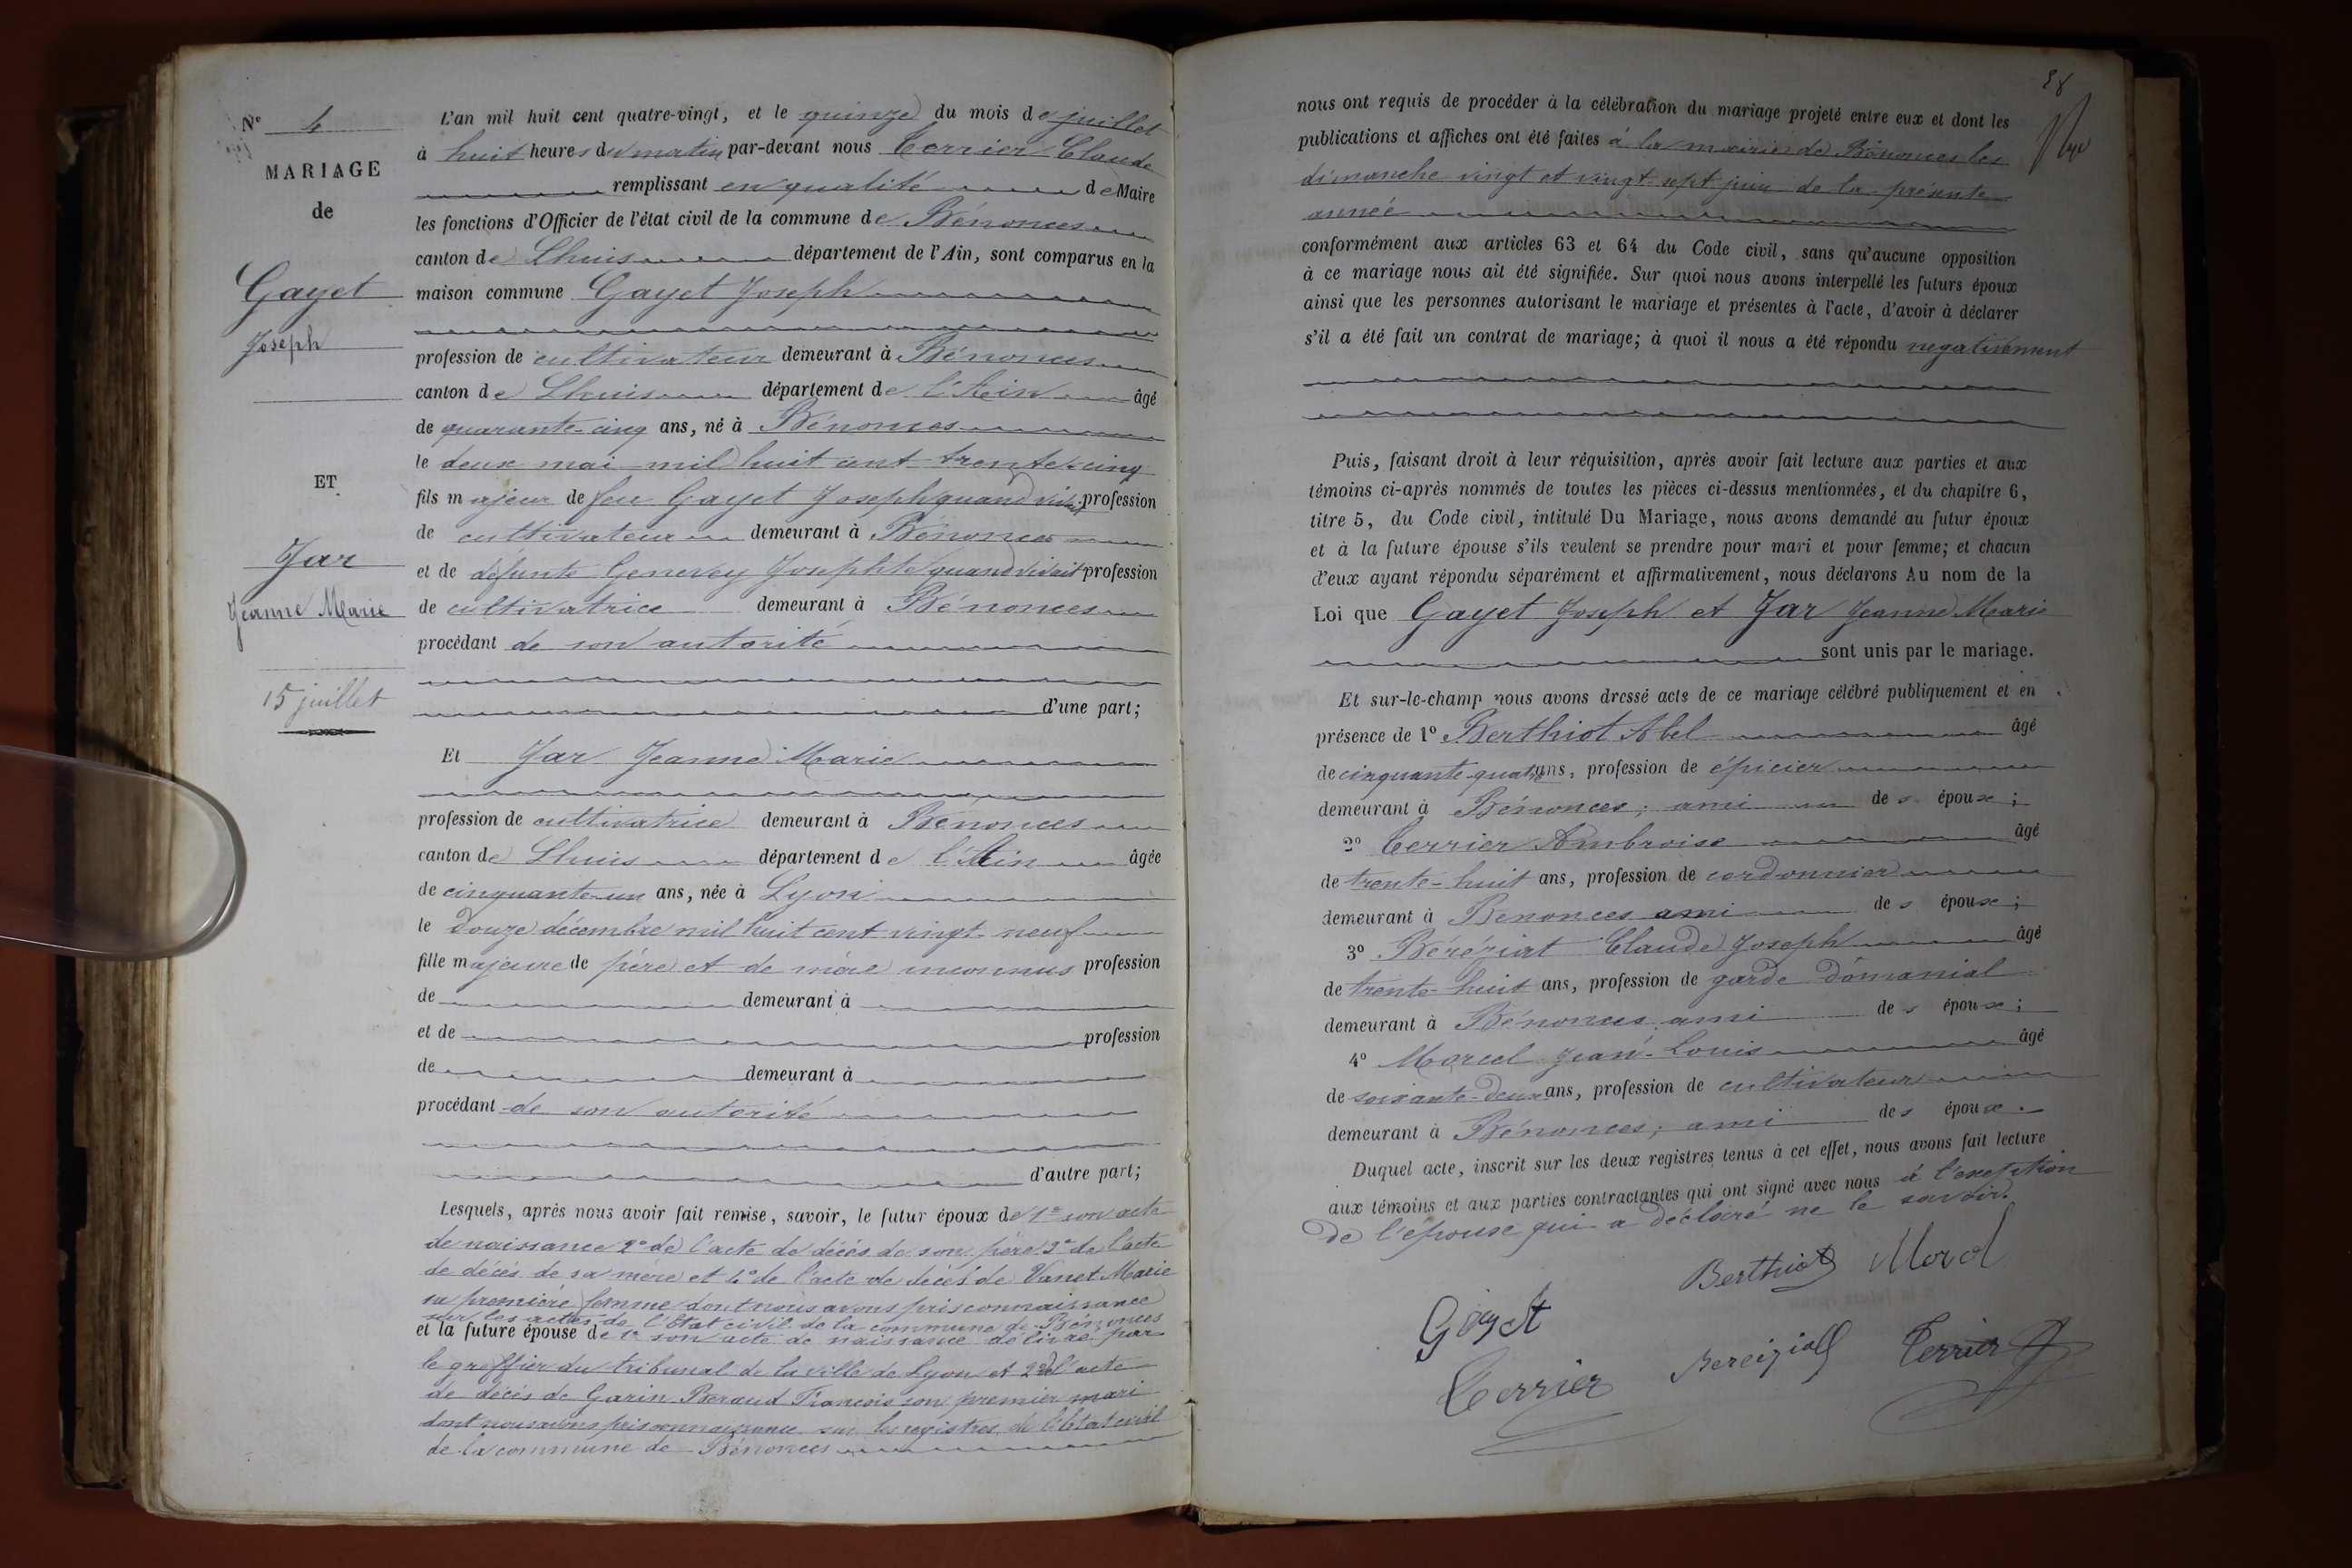 Nº 4
MARIAGE
de
Gayet
Joseph
ET
Jar
Jeanne Marie
15 juillet
L'an mil huit cent quatre-vingt, et le quinze du mois de juillet
à huit heures du matin par-devant nous Terrier Claude
remplissant en qualité de Maire
les fonctions d'Officier de l'état civil de la commune de Bénonces
canton de Lhuis département de l'Ain, sont comparus en la
maison commune Gayet Joseph
profession de cultivateur demeurant à Bénonces
canton de Lhuis département de l'Ain âgé
de quarante-cinq ans, né à Bénonces
le deux mai mil huit cent trente-cinq
fils majeur de feu Gayet Joseph quand vivait profession
de cultivateur demeurant à Bénonces
et de défunte Genevey Josephte quand vivait profession
de cultivatrice demeurant à Bénonces
procédant de son autorité
d'une part;
Et Jar Jeanne Marie
profession de cultivatrice demeurant à Bénonces
canton de Lhuis département de l'Ain âgée
de cinquante-un ans, née à Lyon
le douze décembre mil huit cent vingt-neuf
fille majeure de père et de mère inconnus profession
de demeurant à
et de profession
de demeurant à
procédant de son autorité
d'autre part;
Lesquels, après nous avoir fait remise, savoir, le futur époux de 1º son acte
de naissance 2º de l'acte de décès de son père 3º de l'acte
de décès de sa mère et 4º de l'acte de décès de Vanet Marie
sa première femme dont nous avons pris connaissance
sur les actes de l'Etat civil de la commune de Bénonces
et la future épouse de 1º son acte de naissance délivré par
le greffier du tribunal de la ville de Lyon et 2º de l'acte
de décès de Garin Beraud François son premier mari
dont nous avons pris connaissance sur les registres de l'Etat civil
de la commune de Bénonces
28
nous ont requis de procéder à la célébration du mariage projeté entre eux et dont les
publications et affiches ont été faites à la mairie de Bénonces les
dimanche vingt et vingt-sept juin de la présente
année
conformément aux articles 63 et 64 du Code civil, sans qu'aucune opposition
à ce mariage nous ait été signifiée. Sur quoi nous avons interpellé les futurs époux
ainsi que les personnes autorisant le mariage et présentes à l'acte, d'avoir à déclarer
s'il a été fait un contrat de mariage; à quoi il nous a été répondu negativement
Puis, faisant droit à leur réquisition, après avoir fait lecture aux parties et aux
témoins ci-après nommés de toutes les pièces ci-dessus mentionnées, et du chapitre 6,
titre 5, du Code civil, intitulé Du Mariage, nous avons demandé au futur époux
et à la future épouse s'ils veulent se prendre pour mari et pour femme; et chacun
d'eux ayant répondu séparément et affirmativement, nous déclarons Au nom de la
Loi que Gayet Joseph et Jar Jeanne Marie
sont unis par le mariage.
Et sur-le-champ nous avons dressé acte de ce mariage célébré publiquement et en
présence de 1º Berthiot Abel âgé
de cinquante-quatre ans, profession de épicier
demeurant à Bénonces; ami des époux;
2º Terrier Ambroise âgé
de trente-huit ans, profession de cordonnier
demeurant à Benonces ami des époux;
3º Béréziat Claude Joseph âgé
de trente-huit ans, profession de garde domanial
demeurant à Bénonces ami des époux;
4º Morel Jean-Louis âgé
de soixante-deux ans, profession de cultivateur
demeurant à Bénonces; ami des époux.
Duquel acte, inscrit sur les deux registres tenus à cet effet, nous avons fait lecture
aux témoins et aux parties contractantes qui ont signé avec nous à l'exeption
de l'épouse qui a déclaré ne le savoir.
Berthiot Morel
Gayet
Terrier Bereiziat Terrier